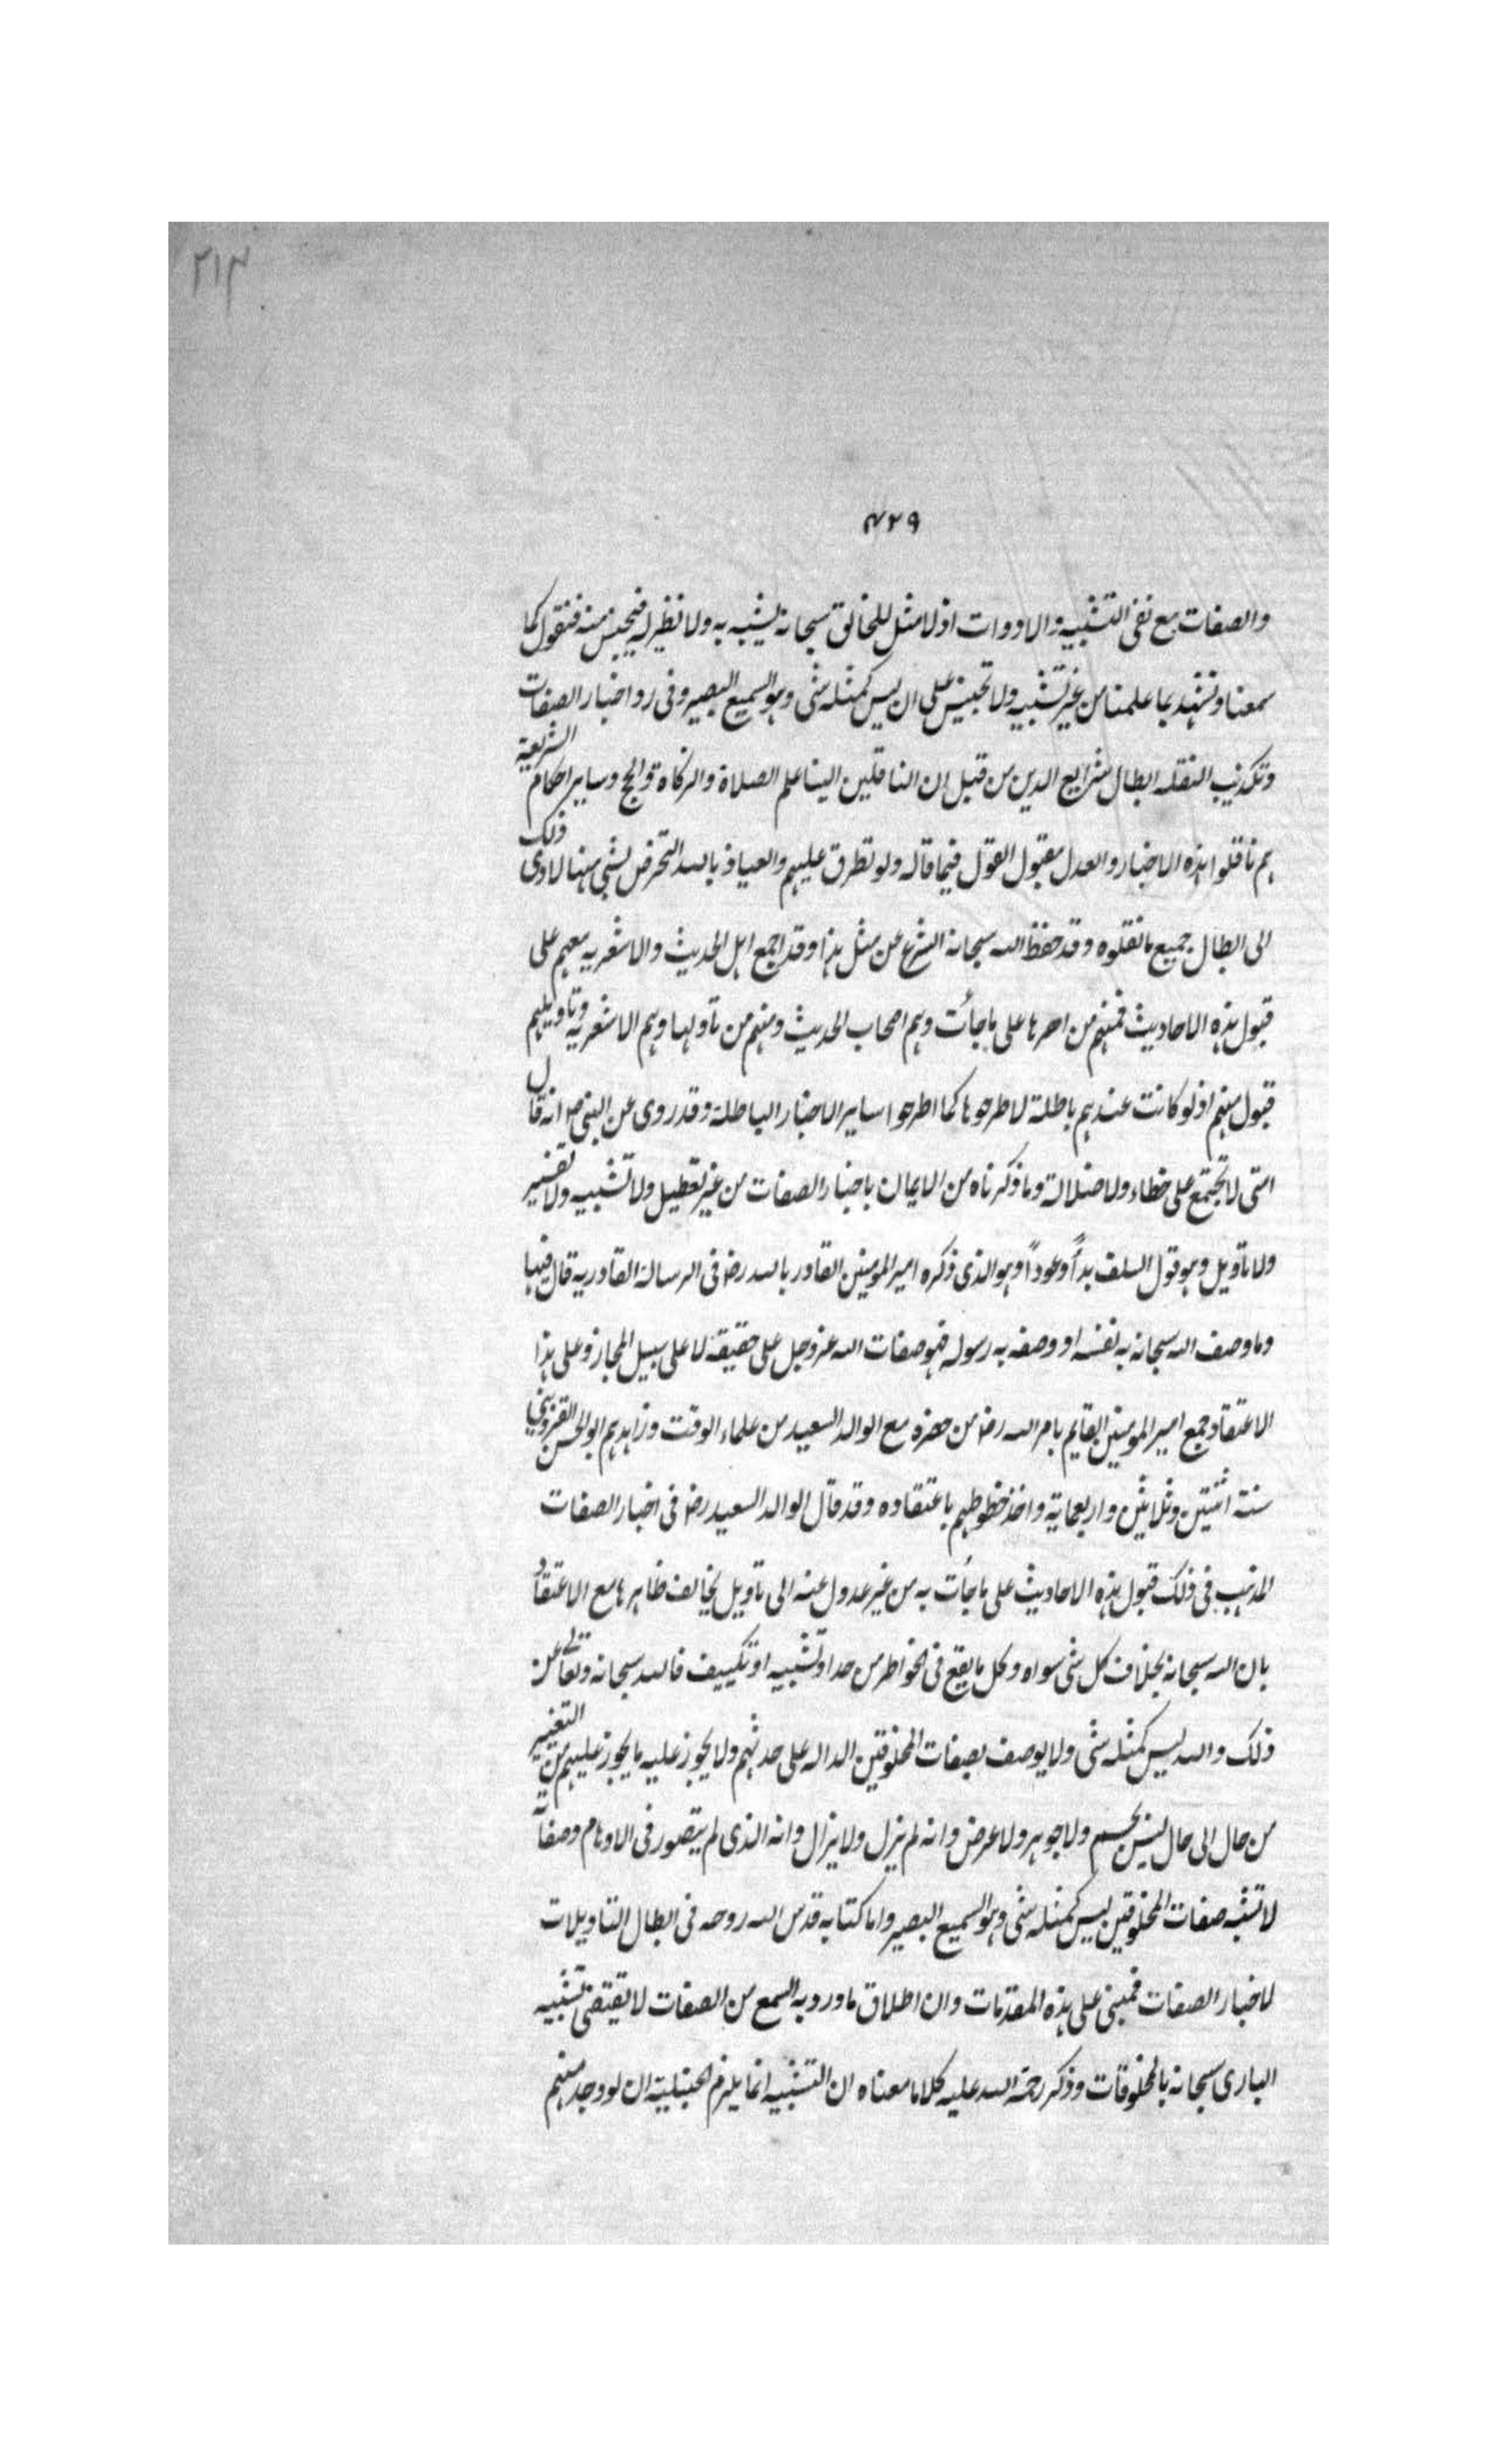 ٢١٣
٤٢٩
والصفات مع نفى التشبيه والادوات اذ لا مثل للخالق سبحانه يشبه به ولا نظير له فيجنس منه فنقول كما
سمعنا ونشهد بما علمنا من غير تشبيه ولا تجنيس على ان ليس كمثله شى وهو السميع البصير وفى رد اخبار الصفات
وتكذيب النقله ابطال شرايع الدين من قبل ان الناقلين الينا علم الصلاة والزكاة والحج وساير احكام الشريعة
هم ناقلوا هذه الاخبار والعدل مقبول القول فيما قاله ولو تطرق عليهم والعياذ بالله التخرص لشى منها لادى ذلك
الى ابطال جميع ما نقلوه وقد حفظ الله سبحانه الشرع عن مثل هذا وقد اجمع اهل الحديث والاشعريه معهم على
قبول هذه الاحاديث فمنهم من امرها على ما جأت وهم اصحاب الحديث ومنهم من تأولها وهم الاشعريه وتاويلهم
قبول منهم اذ لو كانت عندهم باطلة لاطرحوها كما اطرحوا ساير الاخبار الباطلة وقد روى عن النبى ص انه قال
امتى لا تجتمع على خطاء ولا ضلالة وما ذكرناه من الايمان باخبار الصفات من غير تعطيل ولا تشبيه ولا تفسير
ولا تاويل وهو قول السلف بدأً وعوداً وهو الذى ذكره امير المومنين القادر بالله رض فى الرسالة القادريه قال فيها
وما وصف الله سبحانه به نفسه او وصفه به رسوله فهو صفات الله عز وجل على حقيقة لا على سبيل المجاز وعلى هذا
الاعتقاد جمع امير المومنين القايم بامر الله رض من حضره مع الوالد السعيد من علماء الوقت وزاهدهم ابو الحسن القزوينى
سنة اثنتين وثلاثين واربعماية واخذ خطوطهم باعتقاده وقد قال الوالد السعيد رض فى اخبار الصفات
المذهب فى ذلك قبول هذه الاحاديث على ما جأت به من غير عدول عنه الى تاويل يخالف ظاهرها مع الاعتقاد
بان الله سبحانه بخلاف كل شى سواه وكل ما يقع فى الخواطر من حد او تشبيه او تكييف فالله سبحانه وتعالى عن
ذلك والله ليس كمثله شى ولا يوصف بصفات المخلوقين الداله على حدثهم ولا يجوز عليه ما يجوز عليهم من التغيير
من حال الى حال ليس بجسم ولا جوهر ولا عرض وانه لم يزل ولا يزال وانه الذى لم يتصور فى الاوهام وصفاته
لا تشبه صفات المخلوقين ليس كمثله شى وهو السميع البصير واما كتابه قدس الله روحه فى ابطال التاويلات
لاخبار الصفات فمبنى على هذه المقدمات وان اطلاق ما ورد به السمع من الصفات لا يقتضى تشبيه
البارى سبحانه بالمخلوقات وذكر رحمة الله عليه كلاما معناه ان التشبيه انما يلزم الحنبلية ان لو وجد منهم